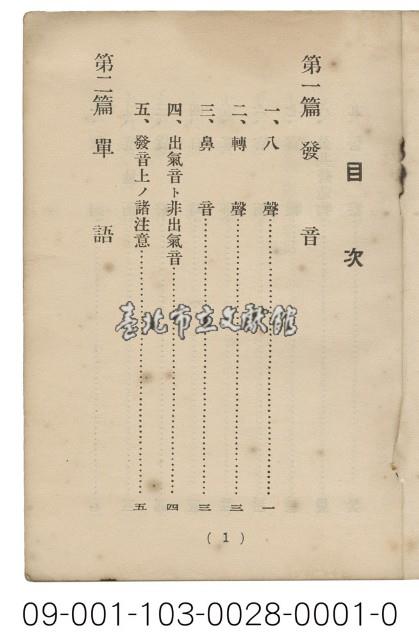 目次
第一篇 發音
一、八聲……一
二、轉聲……三
三、鼻音……三
四、出氣音ト非出氣音……四
五、發音上ノ諸注意……五
第二篇 單語
臺北市立文獻館
( 1 )
09-001-103-0028-0001-0